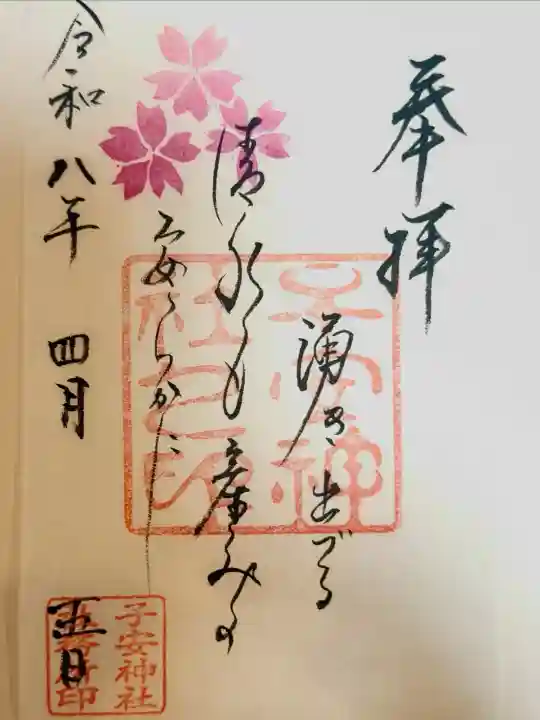 奉拝
湧き出づる
清水も産みの
安らかに
令和八年 四月 五日
子安神社印
子安神社
社務所印